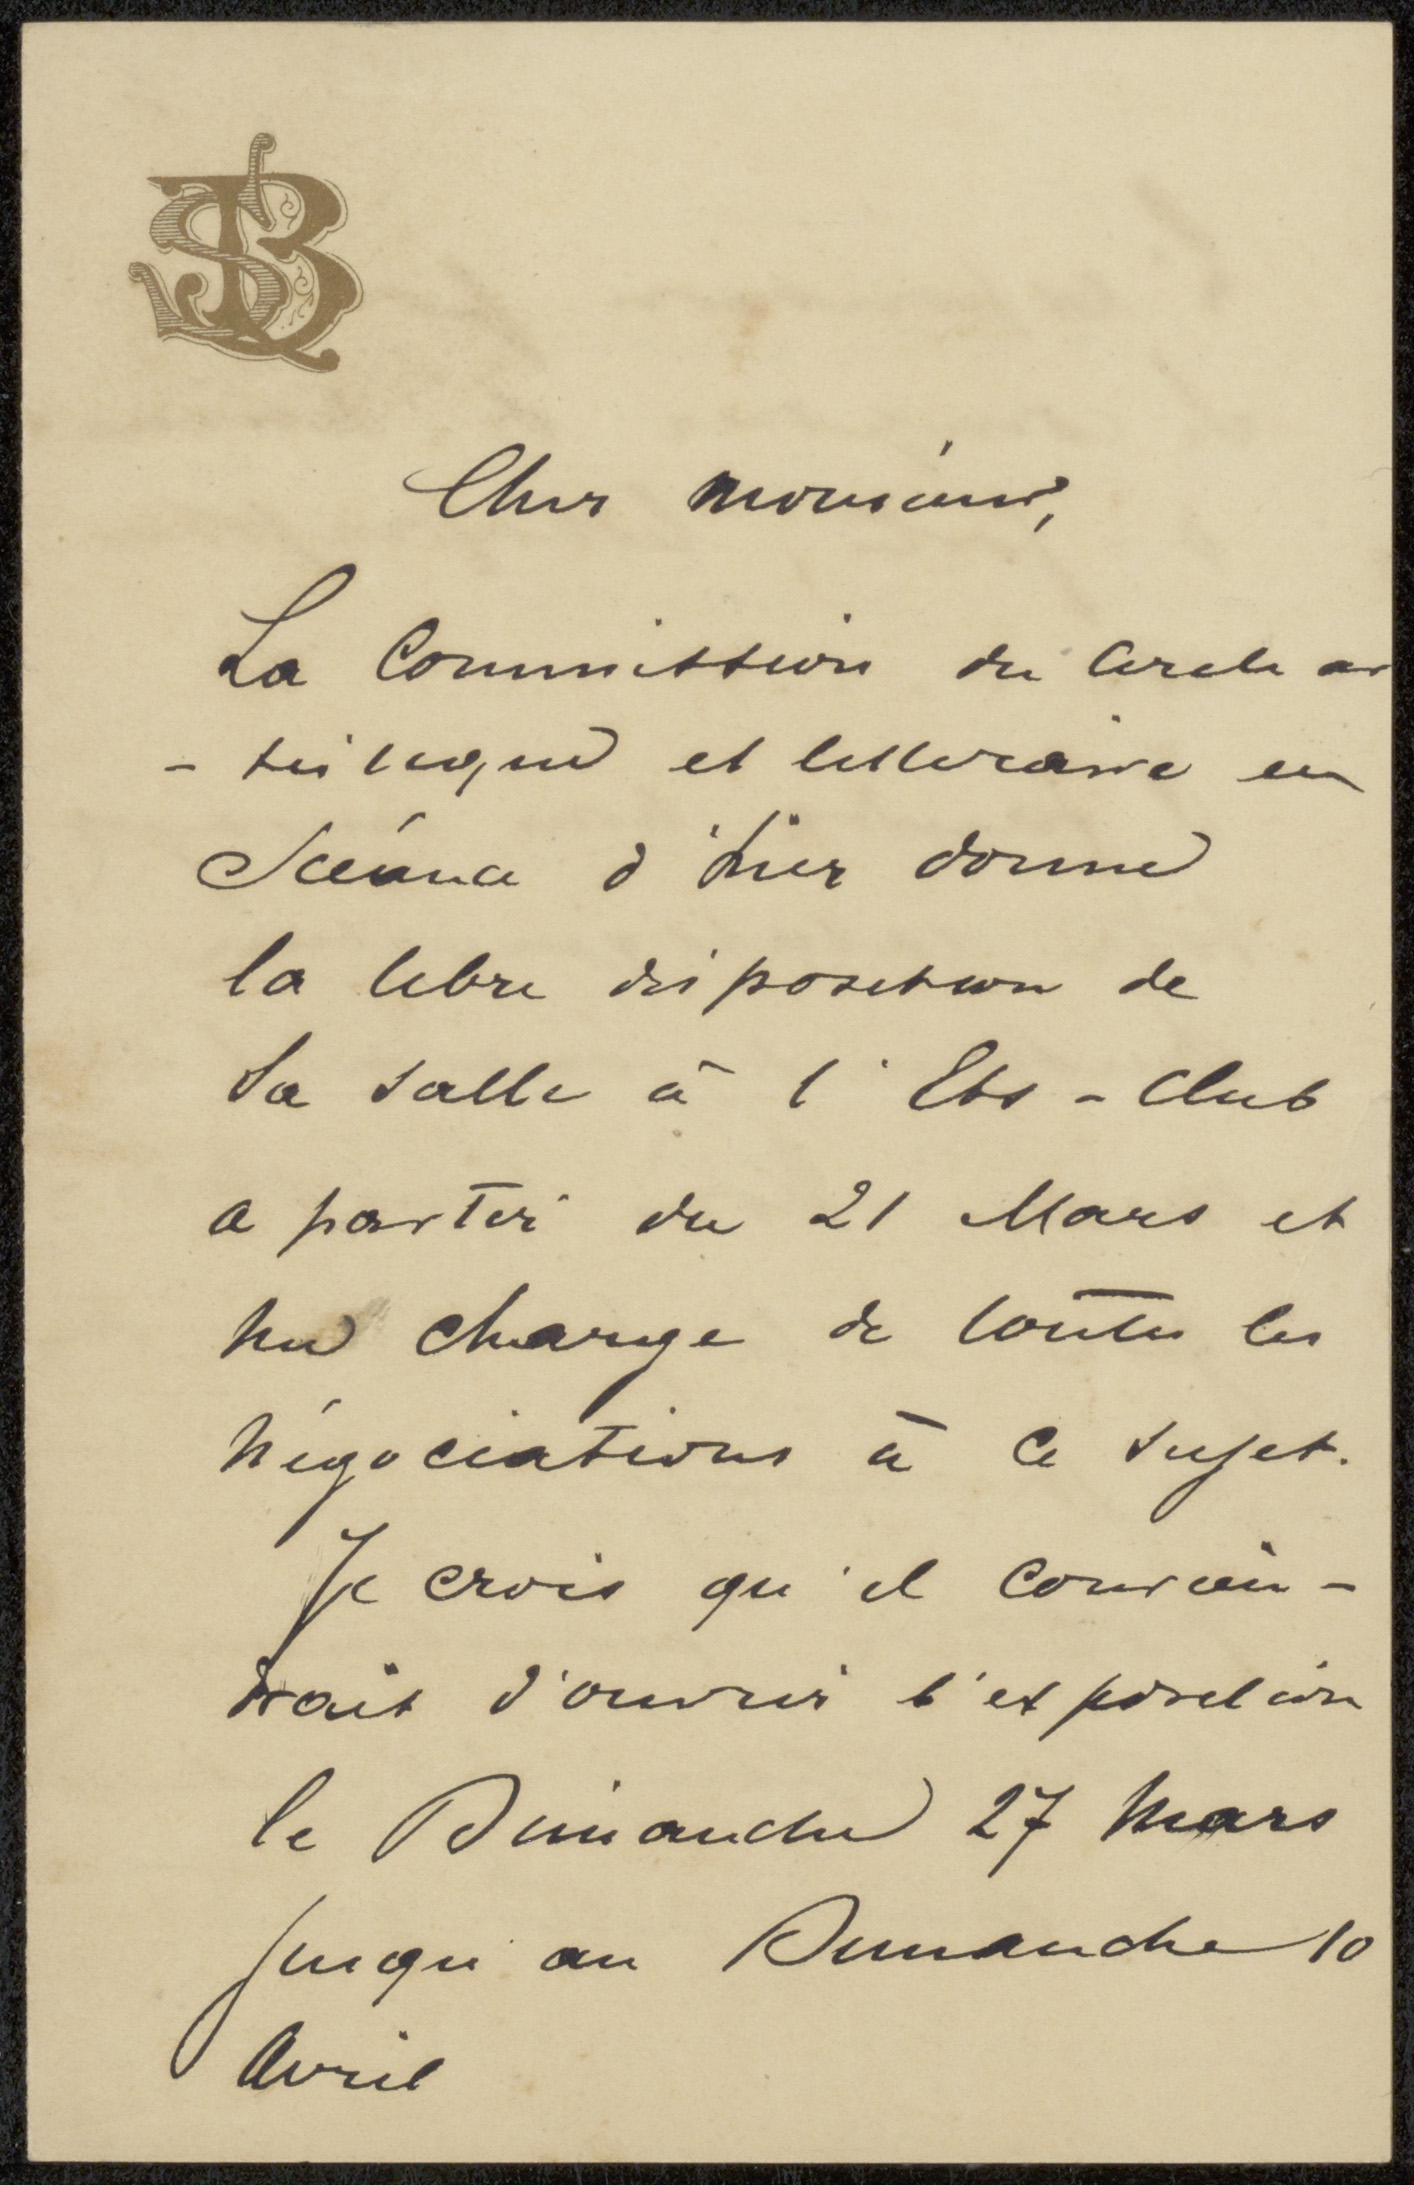 Cher monsieur,
La Commission du Cercle ar
- tistique et littéraire en
Scéance d'hier donne
la libre disposition de
sa salle à l'Ets-Club
a partir du 21 Mars et
me charge de toutes les
négociations à ce sujet.
Je crois qu'il convien-
drait d'ouvrir l'exposition
le Dimanche 27 Mars
jusqu'au Dimanche 10
Avril